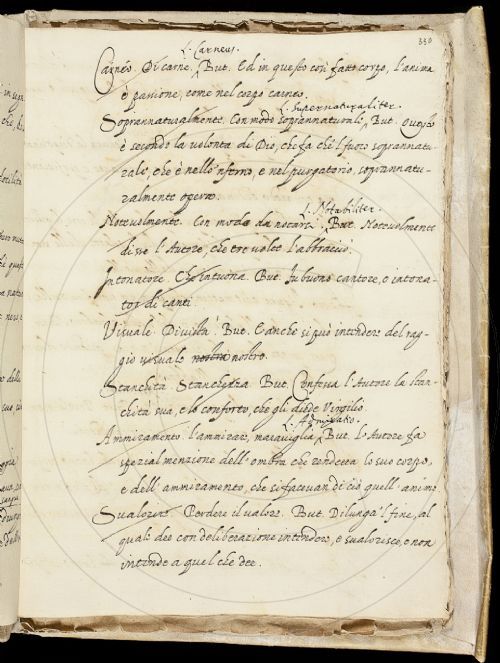 330
L. Carneus.
Carnéo. Di carne. But. Ed in questo così fatto corpo, l'anima
è passione, come nel corpo carneo.
L. Supernaturaliter.
Soprannaturalmente. Con modo soprannaturale. But. Questo
è secondo la volontà di Dio, che fa che 'l fuoco soprannatu-
rale, che è nello 'nferno, e nel purgatorio, soprannatu-
ralmente opera.
L. Notabiliter.
Notevolmente. Con modo da notarsi. But. Notevolmente
disse l'Autore, che tre volte l'abbracciò.
Intonatore. Che intuona. But. Fu buono cantore, e intona-
tor di canti.
Visuale. Di vista. But. E anche si può intendere del rag-
gio visuale nostra nostro.
Stanchità. Stanchezza. But. Confessa l'Autore la stan-
chità sua, e lo conforto, che gli diede Virgilio.
L. Admiratio.
Ammiramento. L'ammirare, maraviglia. But. L'Autore fa
spezial menzione dell'ombra che rendeva lo suo corpo,
e dell'ammiramento, che si facevan di ciò quell'anime
Svalorere. Perdere il valore. But. Dilunga 'l fine, al
qual dee con deliberazione intendere, e svalorisce, e non
intende a quel che dee.